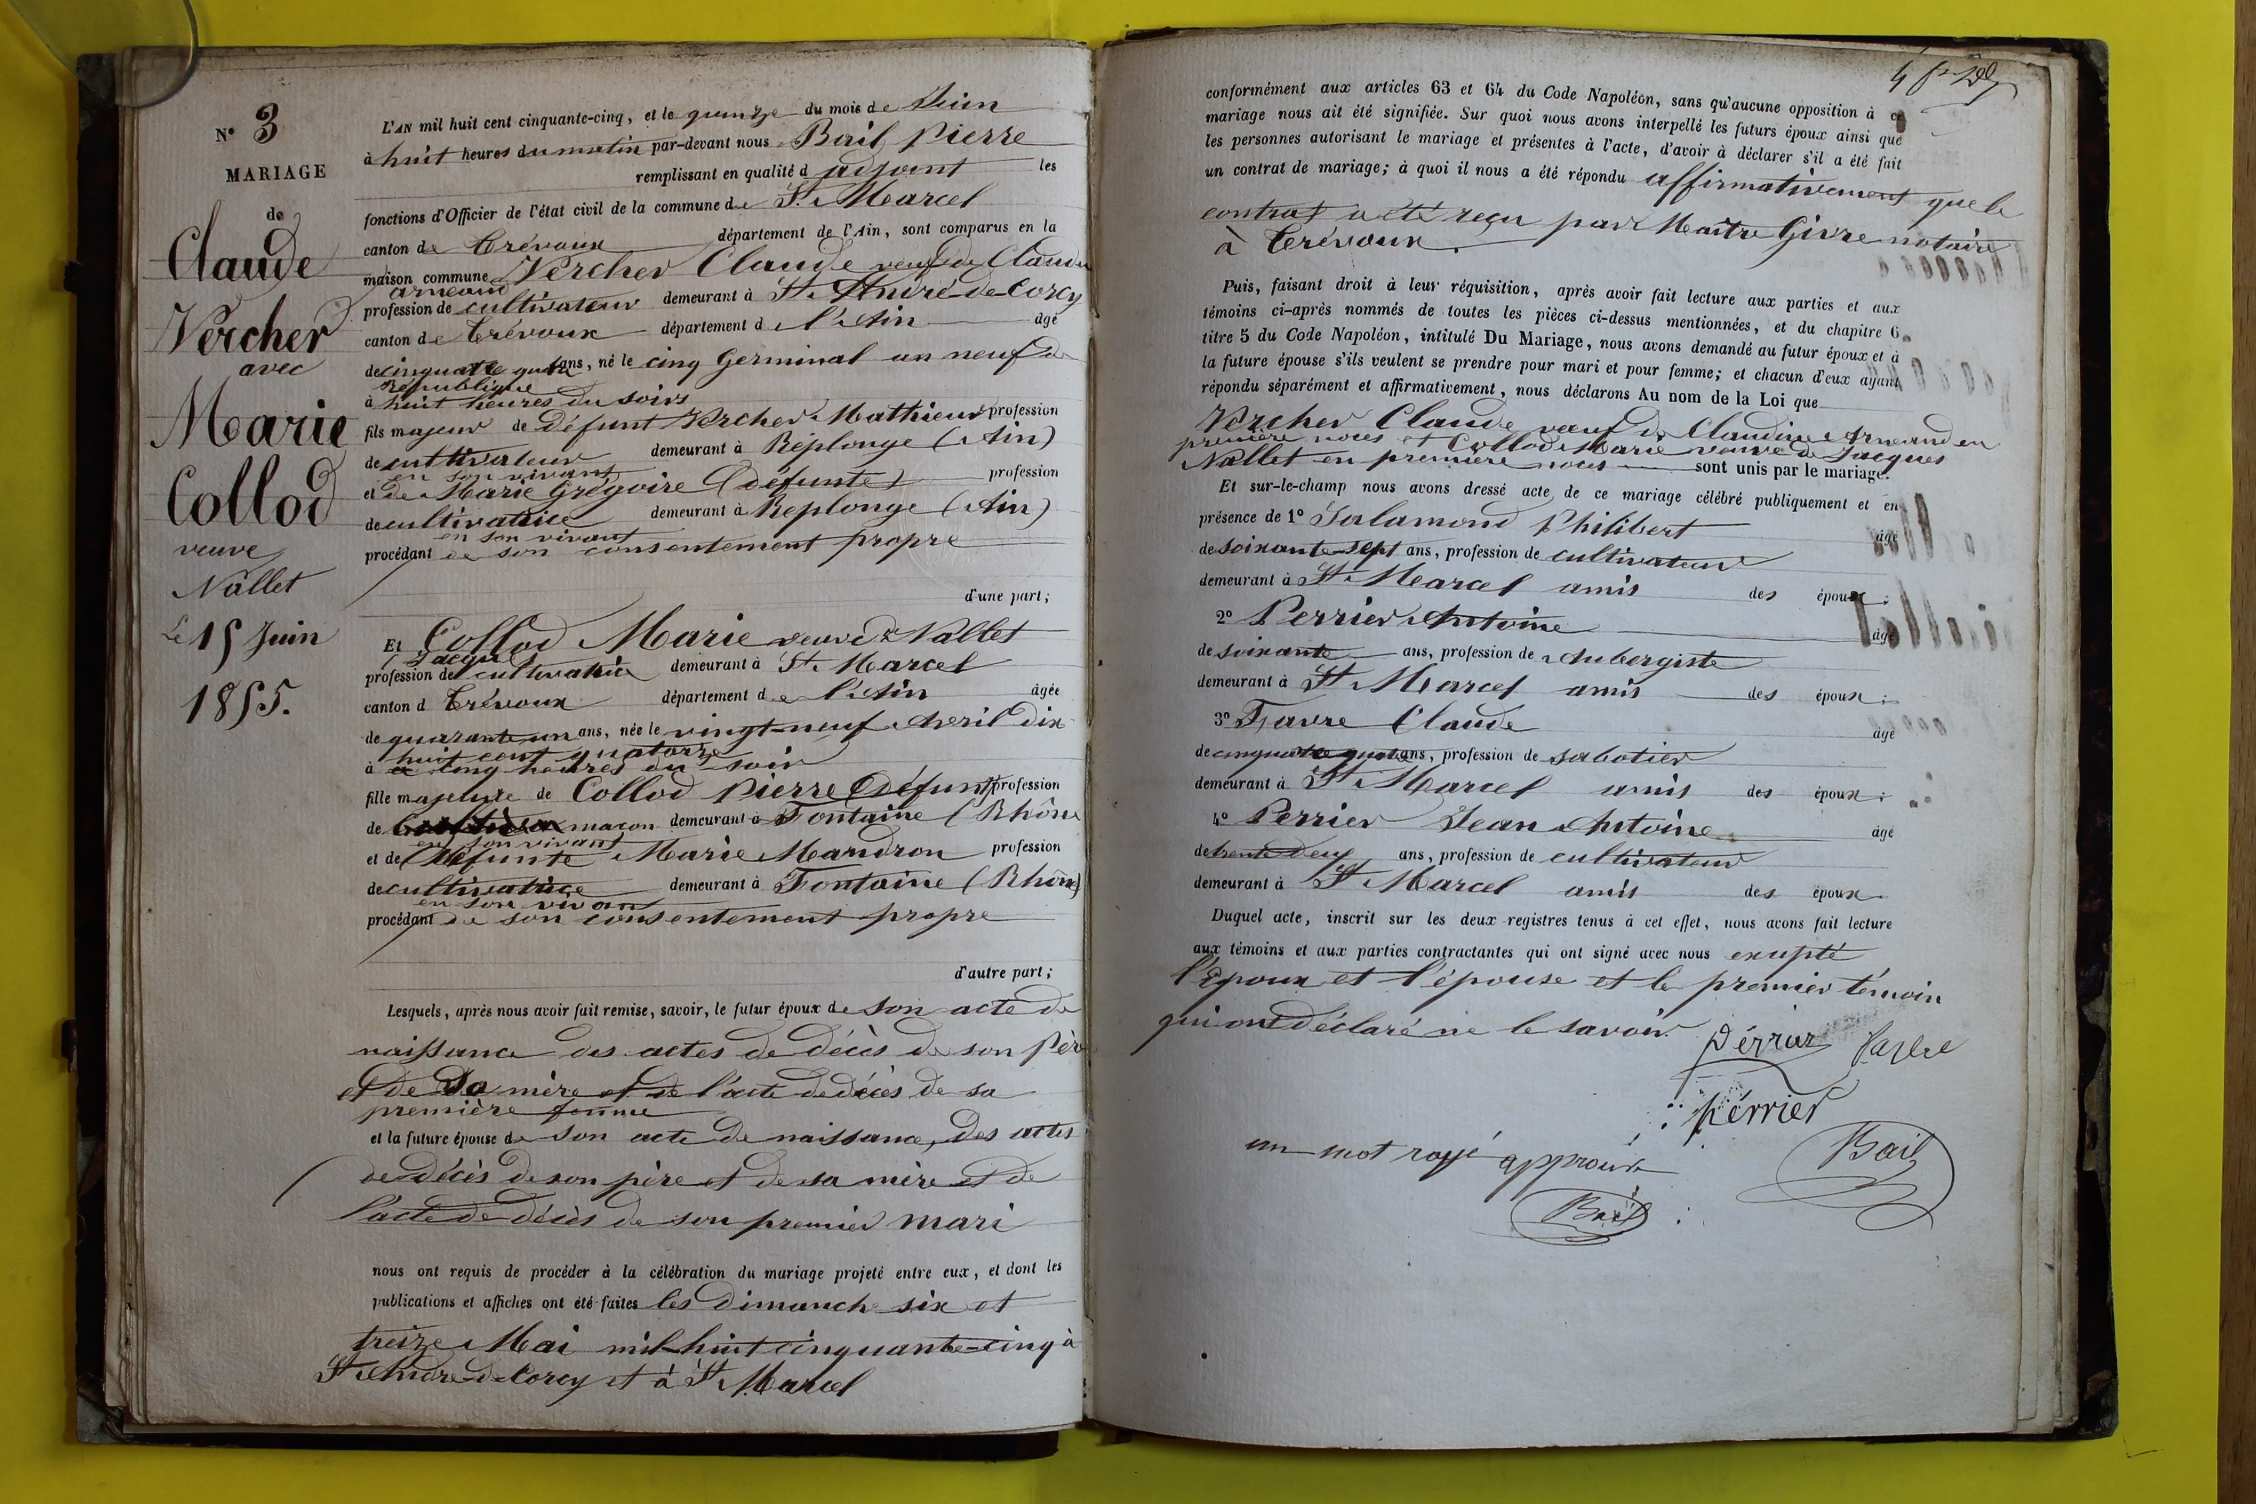 N° 3
MARIAGE
de
Claude
Vercher
avec
Marie
Collod
veuve
Nallet
Le 15 Juin
1855.
L'AN mil huit cent cinquante-cinq, et le quinze du mois de Juin
à huit heures du matin par-devant nous Bail Pierre
remplissant en qualité d adjoint les
fonctions d'Officier de l'état civil de la commune de St Marcel
canton de Trévoux département de l'Ain, sont comparus en la
maison commune Vercher Claude veuf de Claudine
arneand
profession de cultivateur demeurant à St André-de-Corcy
canton de Trévoux département de l'Ain âgé
de cinquante quatre ans, né le cinq Germinal an neuf de
République
à huit heures du soir
fils majeur de Défunt Vercher Mathieu profession
de cultivateur demeurant à Replonge (Ain)
en son vivant
et de Marie Grégoire (défunte) profession
de cultivatrice demeurant à Replonge (Ain)
en son vivant
procédant de son consentement propre
d'une part;
Et Collod Marie veuve de Nallet
Jacques
profession de cultivatrice demeurant à St Marcel
canton d Trévoux département de l'Ain âgée
de quarante un ans, née le vingt-neuf Avril dix
huit cent quatorze
à cinq heures du soir
fille majeure de Collod Pierre (Défunt) profession
de maçon demeurant à Fontaine (Rhône
en son vivant
et de Défunte Marie Mandron profession
de cultivatrice demeurant à Fontaine (Rhône)
en son vivan
procédant de son consentement propre
d'autre part;
Lesquels, après nous avoir fait remise, savoir, le futur époux de son acte de
naissance des actes de décès de son père
et de sa mère et de l'acte de décès de sa
première femme
et la future épouse de son acte de naissance, des actes
de décès de son père et de sa mère et de
l'acte de décès de son premier mari
nous ont requis de procéder à la célébration du mariage projeté entre eux, et dont les
publications et affiches ont été faites les dimanche six et
treize Mai mil huit cinquante-cinq à
St André-de-Corcy et à St Marcel
conformément aux articles 63 et 64 du Code Napoléon, sans qu'aucune opposition à ce
mariage nous ait été signifiée. Sur quoi nous avons interpellé les futurs époux ainsi que
les personnes autorisant le mariage et présentes à l'acte, d'avoir à déclarer s'il a été fait
un contrat de mariage; à quoi il nous a été répondu affirmativement que le
contrat a été reçu par Maître Givre notaire
à Trévoux.
Puis, faisant droit à leur réquisition, après avoir fait lecture aux parties et aux
témoins ci-après nommés de toutes les pièces ci-dessus mentionnées, et du chapitre 6
titre 5 du Code Napoléon, intitulé Du Mariage, nous avons demandé au futur époux et à
la future épouse s'ils veulent se prendre pour mari et pour femme; et chacun d'eux ayant
répondu séparément et affirmativement, nous déclarons Au nom de la Loi que
Vercher Claude veuf de Claudine Arneand en
première noces et Collod Marie veuve de Jacques
Nallet en première noces sont unis par le mariage.
Et sur-le-champ nous avons dressé acte de ce mariage célébré publiquement et en
présence de 1° Salamond Philibert âgé
de soixante sept ans, profession de cultivateur
demeurant à St Marcel amis des époux;
2° Perrier Antoine âgé
de soixante ans, profession de Aubergiste
demeurant à St Marcel amis des époux;
3° Favre Claude âgé
de cinquante quatre ans, profession de sabotier
demeurant à St Marcel amis des époux;
4° Perrier Jean Antoine âgé
de trente deux ans, profession de cultivateur
demeurant à St Marcel amis des époux.
Duquel acte, inscrit sur les deux registres tenus à cet effet, nous avons fait lecture
aux témoins et aux parties contractantes qui ont signé avec nous excepté
l'Époux et l'épouse et le premier témoin
qui ont déclaré ne le savoir.
Périer Favre
Périer
un mot rayé approuvé
Bail
Bail